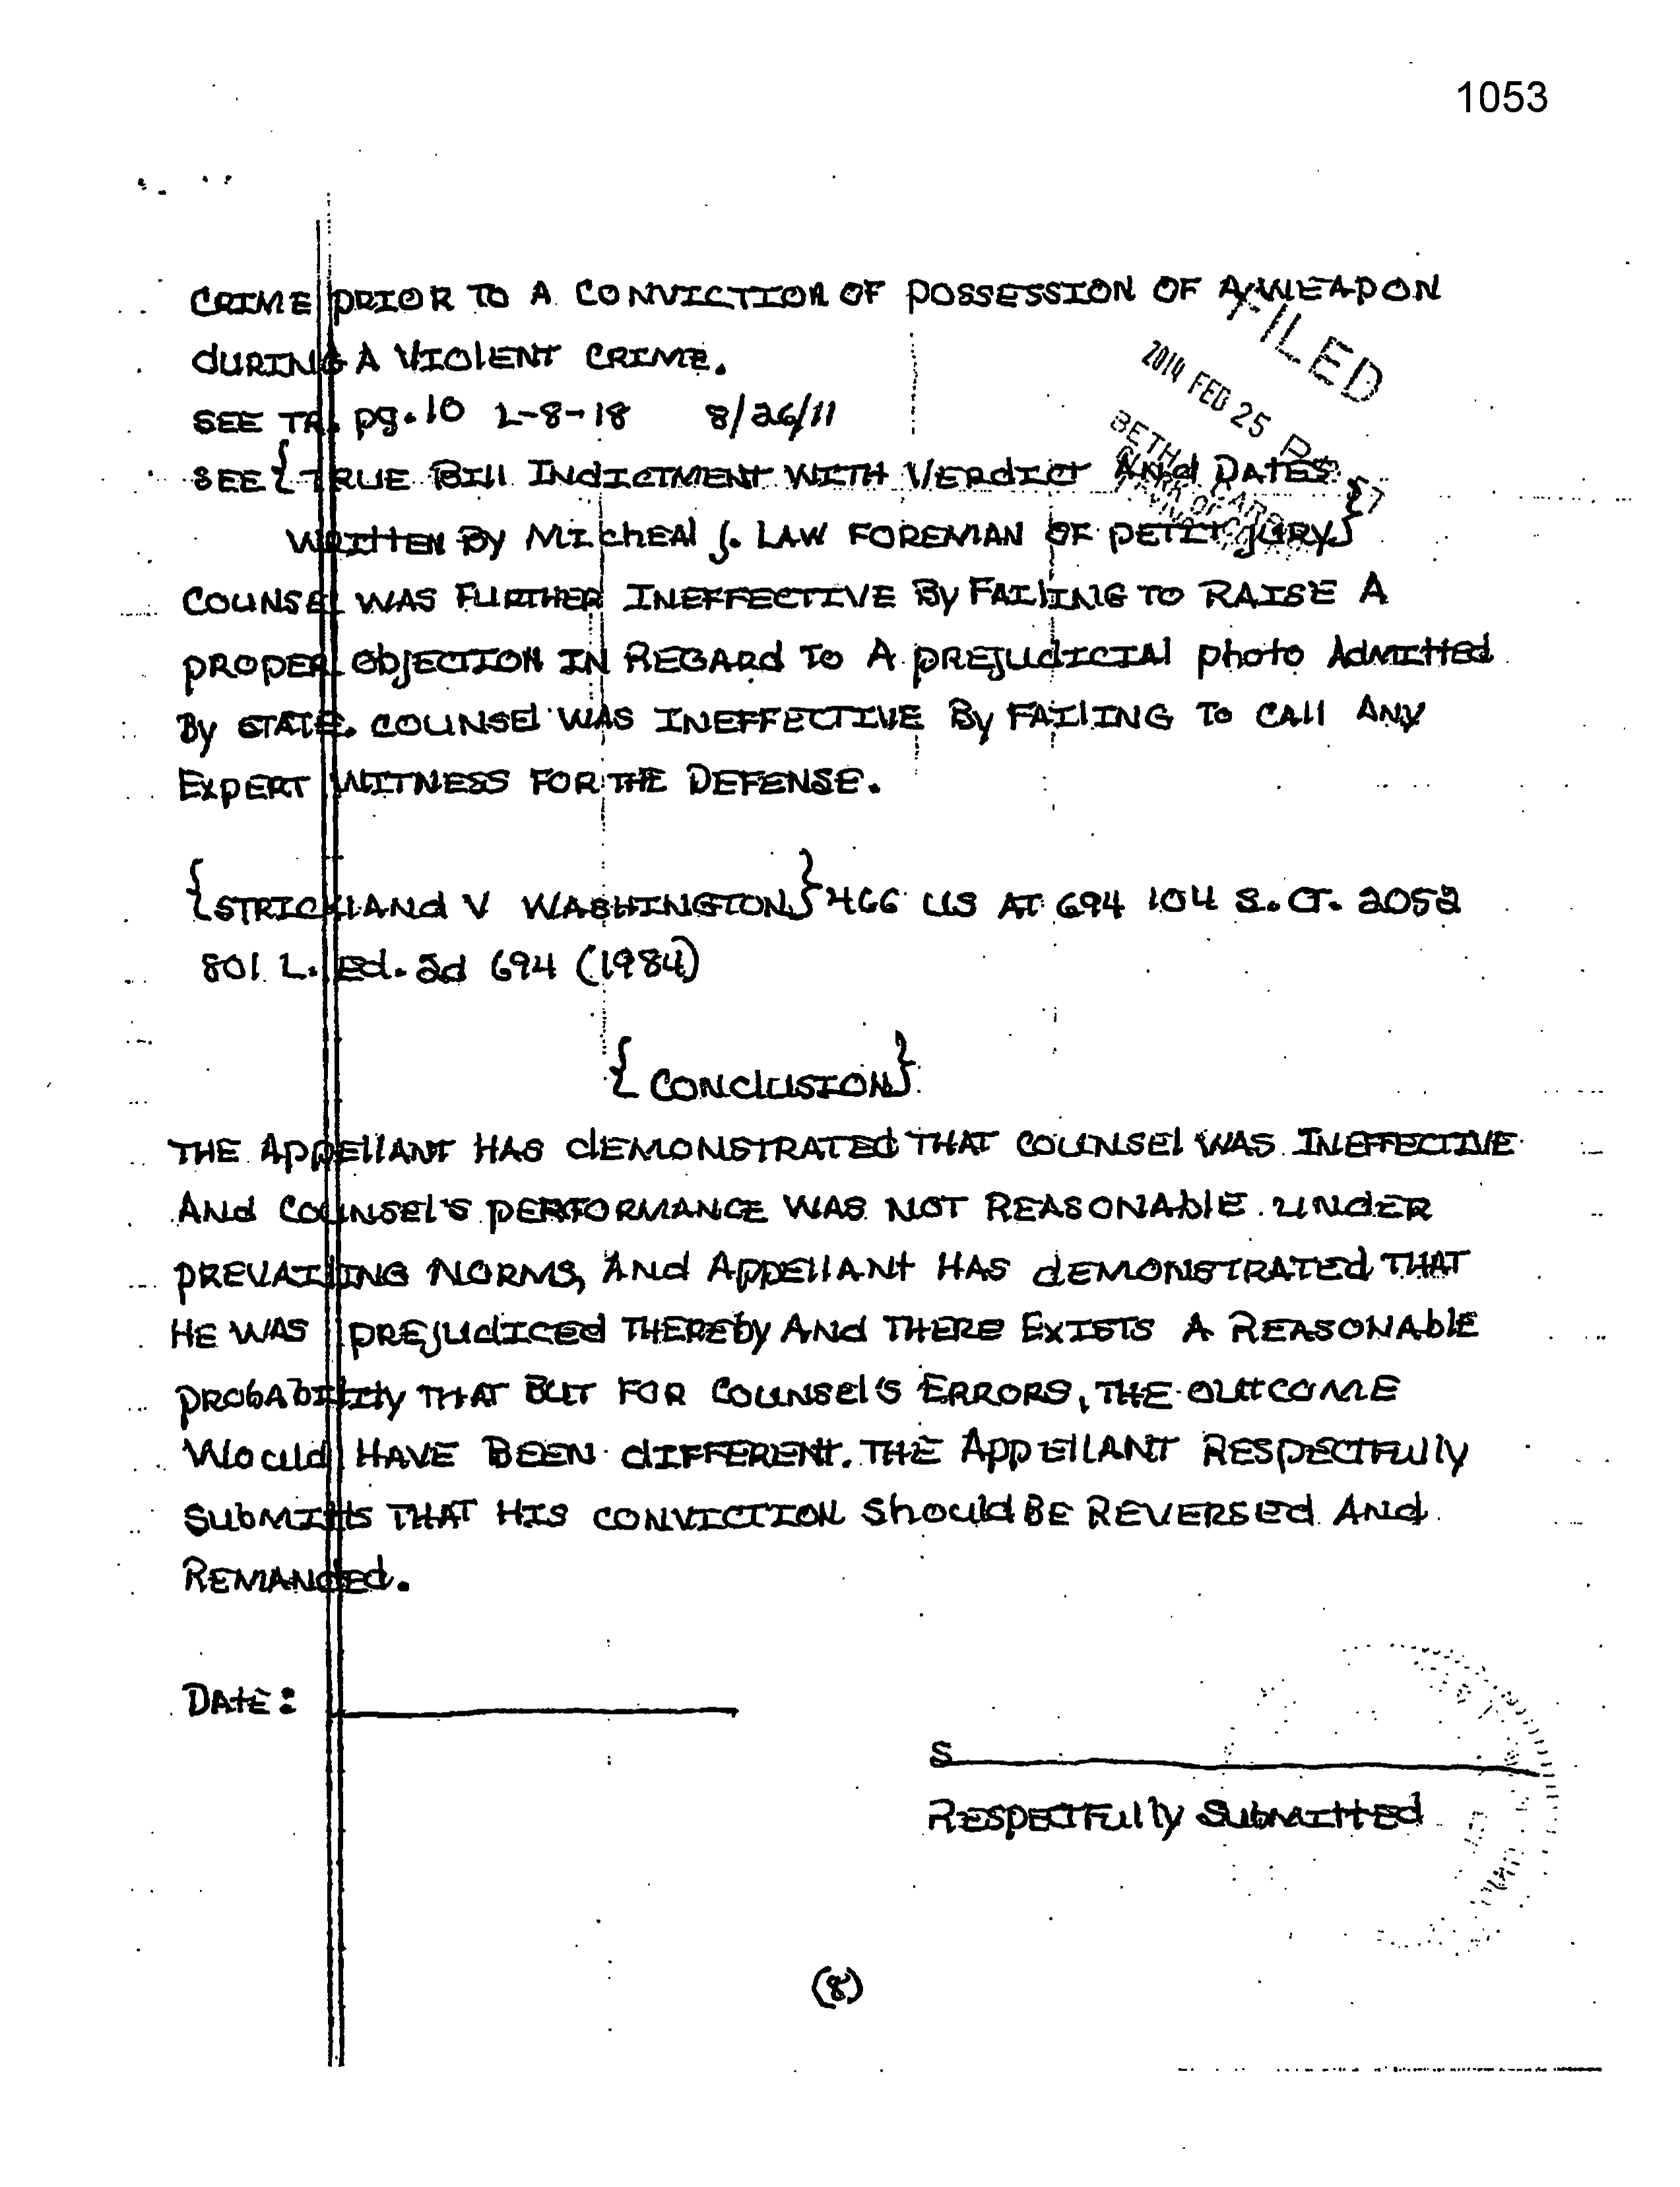 1053
CRIME PRIOR TO A CONVICTION OF POSSESSION OF A WEAPON
DURING A VIOLENT CRIME.
SEE TR. pg. 10 L-8-18 8/26/11
SEE {TRUE BILL INDICTMENT WITH VERDICT AND DATES
WRITTEN BY MICHEAL J. LAW FOREMAN OF PETIT JURY}
FILED
2014 FEB 25
BETH
COUNSEL WAS FURTHER INEFFECTIVE BY FAILING TO RAISE A
PROPER OBJECTION IN REGARD TO A PREJUDICIAL PHOTO ADMITTED
BY STATE. COUNSEL WAS INEFFECTIVE BY FAILING TO CALL ANY
EXPERT WITNESS FOR THE DEFENSE.
{STRICKLAND V WASHINGTON} 466 US AT 694 104 S. CT. 2052
801 L. Ed. 2d 694 (1984)
{CONCLUSION}
THE APPELLANT HAS DEMONSTRATED THAT COUNSEL WAS INEFFECTIVE
AND COUNSEL'S PERFORMANCE WAS NOT REASONABLE UNDER
PREVAILING NORMS, AND APPELLANT HAS DEMONSTRATED THAT
HE WAS PREJUDICED THEREBY AND THERE EXISTS A REASONABLE
PROBABILITY THAT BUT FOR COUNSEL'S ERRORS, THE OUTCOME
WOULD HAVE BEEN DIFFERENT. THE APPELLANT RESPECTFULLY
SUBMITTS THAT HIS CONVICTION SHOULD BE REVERSED AND
REMANDED.
DATE:
S
RESPECTFULLY SUBMITTED
(8)